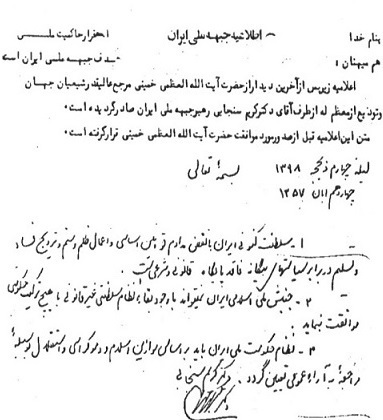 بنام خدا
اطلاعیه جبهه ملی ایران
استقرار حاکمیت ملی
هدف جبهه ملی ایران است
هم میهنان:
اعلامیه زیر پس از آخرین دیدار از حضرت آیت الله العظمی خمینی مرجع عالیقدر شیعیان جهان
و تودیع از معظم له از طرف آقای دکتر کریم سنجابی رهبر جبهه ملی ایران صادر گردیده است.
متن این اعلامیه قبل از صدور مورد موافقت حضرت آیت الله العظمی خمینی قرار گرفته است.
بسمه تعالی
چهارم ذیحجه ۱۳۹۸
چهاردهم آبان ۱۳۵۷
۱ـ سلطنت کنونی ایران با نقض مداوم قوانین اساسی و اعمال ظلم و ستم و ترویج فساد
و تسلیم در برابر سیاستهای بیگانه فاقد پایگاه قانونی و شرعی است.
۲ـ جنبش ملی اسلامی ایران نمیتواند با وجود بقاء نظام سلطنتی غیر قانونی با هیچ ترکیب حکومتی
موافقت نماید.
۳ـ نظام حکومت ملی ایران باید بر اساس موازین اسلام و دموکراسی و استقلال بوسیله
مراجعه به آراء عمومی تعیین گردد.
دکتر کریم سنجابی